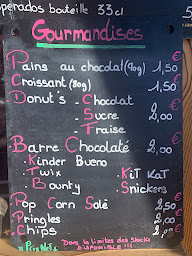 perados bouteille 33cl 5
Gourmandises €
Pains au chocolat (70g) 1,50 €
Croissant (80g) 1,50 €
Donut's - Chocolat €
- Sucre 2,00
- Fraise
Barre Chocolaté 2,00 €
• Kinder Bueno
• Twix • Kit Kat
• Bounty • Snickers
Pop Corn Salé 2,50 €
Pringles 2,00 €
Chips 2,00 €
Dans la limites des stocks
DISPONIBLE !!!